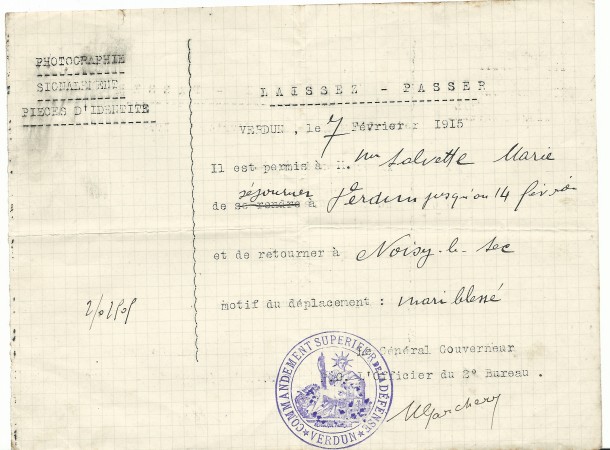 PHOTOGRAPHIE
SIGNALEMENT
PIECES D'IDENTITE
LAISSEZ - PASSER
VERDUN, le 7 Février 1915
Il est permis à M. me Salvette Marie
séjourner
de se rendre à Verdun jusqu'au 14 février
et de retourner à Noisy-le-sec
motif du déplacement : mari blessé
Général Gouverneur
l'Officier du 2e Bureau .
COMMANDEMENT SUPERIEUR DE LA DÉFENSE
VERDUN